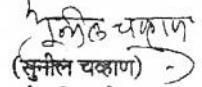 सुनील चव्हाण
(सुनील चव्हाण)